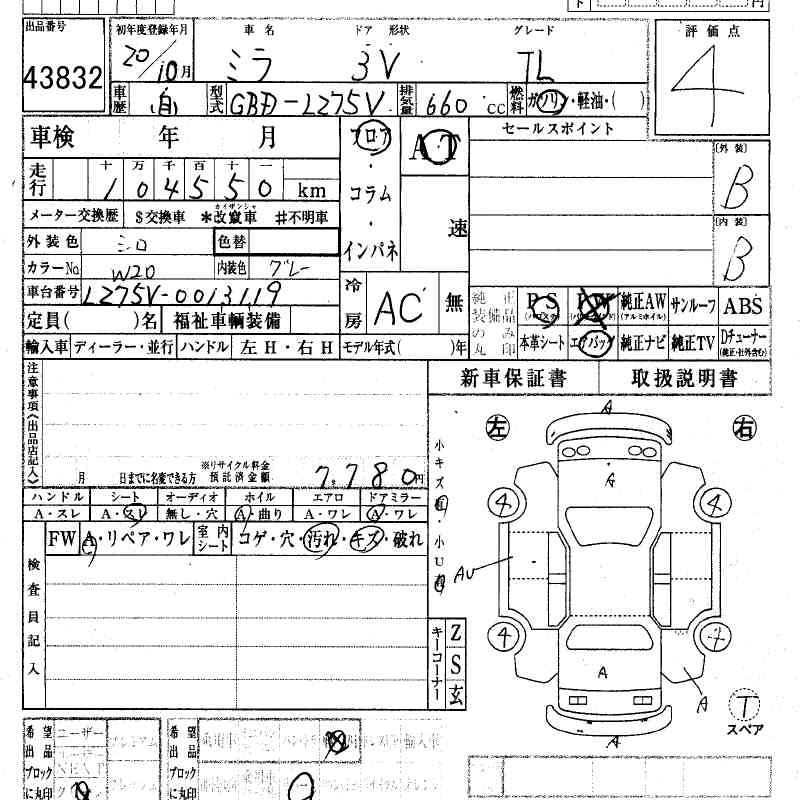 円
出品番号 初年度登録年月 車名 ドア 形状 グレード 評価点
43832 20/10月 ミラ 3V TL 4
車歴 自 型式 GBD-L275V 排気量 660 CC 燃料 ガソリン・軽油・( )
車検 年 月 フロア AT セールスポイント
走行 十 万 千 百 十 一 [外装]
1 0 4 5 5 0 km コラム B
メーター交換歴 $交換車 *改竄車 #不明車 カイザンシャ 速
外装色 シロ 色替 インパネ [内装]
カラーNo W20 内装色 グレー B
車台番号 L275V-0013119 冷房 AC 無 純正装備品のみ丸印 PS (パワステ) PW 純正AW (アルミホイル) サンルーフ ABS
定員( )名 福祉車輌装備 本革シート エアバッグ 純正ナビ 純正TV Dチューナー (純正・社外含む)
輸入車 ディーラー・並行 ハンドル 左H・右H モデル年式( )年
注意事項(出品店記入) 新車保証書 取扱説明書
左 右 A
※リサイクル料金 預託済金額 7,780円
月 日までに名変できる方
ハンドル シート オーディオ ホイル エアロ ドアミラー
A・スレ A・スレ 無し・穴 A・曲り A・ワレ A・ワレ
FW A・リペア・ワレ 室内シート コゲ・穴・汚れ・キズ・破れ
検査員記入
小キズ 小U
A
4 4
AU
4 4
A A
A
キーコーナー Z S 玄
T スペア
希望出品ブロックに丸印 ユーザー プレミアム
NEXT
希望出品ブロックに丸印